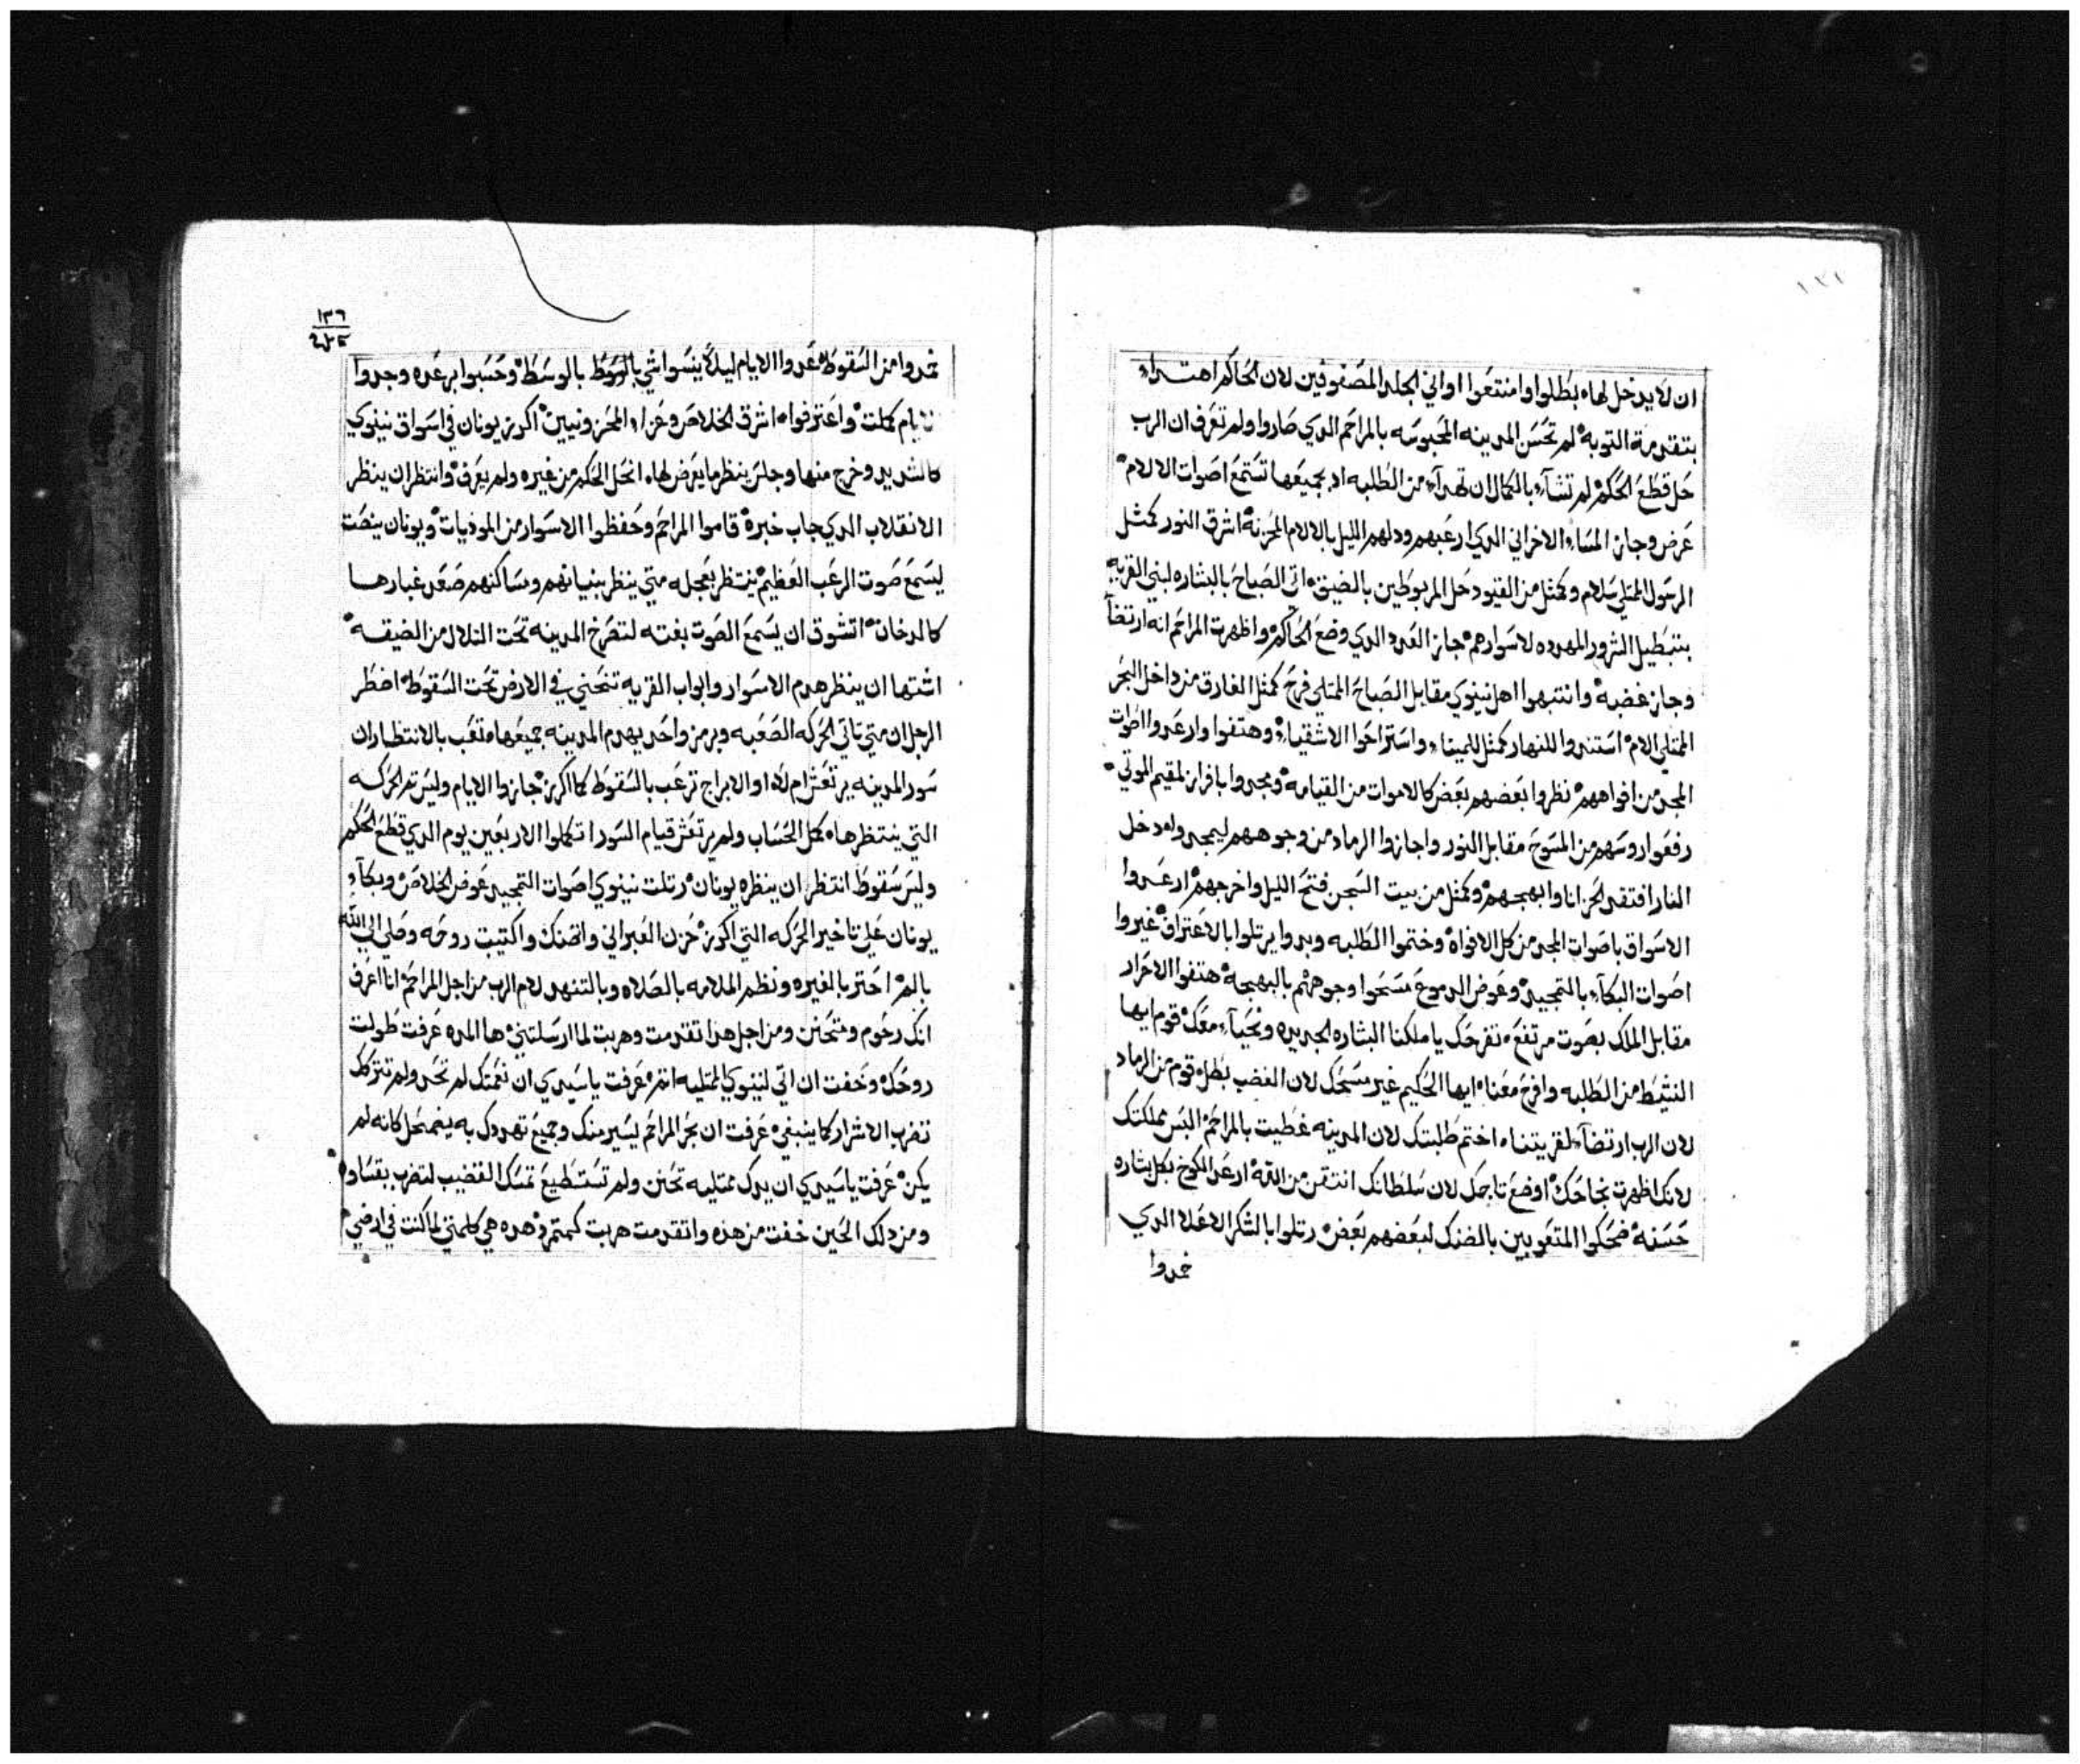 ان لا يدخل لها بطلوا وامتنعوا اواني الجلد المصفوفين لان الحاكم اهتداء
بتقدمة التوبه لم تحسن المدينه المحبوسه بالمراحم الدي صاروا ولم تعرف ان الرب
حل قطع الحكم لم تشآء بالكمال ان تهدآء من الطلبه اد بجميعها تستمع اصوات الالام
عرض وجاز المسا الاخراني الدي ارعبهم ودلهم الليل بالالام المحزنه اشرق النور كمثل
الرسول الممتلي سلام وكمثل من القيود حل المربوطين بالضيق اتى الصباح بالبشاره لبني القريه
بتبطيل الشرور المهدده لاسوارهم جاز العدد الدي وضع الحاكم واظهرت المراحم انه ارتضآ
وجاز غضبه وانتبهوا اهل نينوي مقابل الصباح الممتلي فرح كمثل الغارق من داخل البحر
الممتلي الام استندوا للنهار كمثل للمينا واستراحوا الاشقياء وهتفوا وارعدوا اصوات
المجد من افواههم نظروا بعضهم بعض كالاموات من القيامه ومجدوا بافراز لمقيم الموتي
رفعوا روسهم من المسوح مقابل النور واجازوا الرماد من وجوههم ليمجدوا دخل
النار افتقد الحزانا وابهجهم وكمثل من بيت السجن فتح الليل واخرجهم ارعدوا
الاسواق باصوات المجد من كل الافواه وختموا الطلبه وبدوا يرتلوا بالاعتراف غيروا
اصوات البكآء بالتمجيد وعوض الدموع مسحوا وجوههم بالبهجه هتفوا الاحرار
مقابل الملك بصوت مرتفع تفرحك يا ملكنا البشاره الجديده ونحيآء معك قوم ايها
النشيط من الطلبه وافرح معنا ايها الحكيم غير مسحك لان الغضب بطل قوم من الرماد
لان الرب ارتضآ لقريتنا اختم طلبتك لان المدينه غطيت بالمراحم البس مملكتك
لانك اظهرت نجاحك اوضع تاجك لان سلطانك انتقن من الله ارعد الكرخ بكل بشاره
حسنه ضحكوا المتعوبين بالضنك لبعضهم بعض رتلوا بالشكر الاعلا الدي
خدوا
١٣٦
خدوا من السقوط عدوا الايام ليلا ينسوا شي بالوسط وحسبوا برعده وجدوا
الايام كملت واعترفوا اشرق الخلاص وعزاء المحزونيين اكرز يونان في اسواق نينوي
كالشديد وخرج منها وجلس ينظر ما يعرض لها انحل الحكم من غيره ولم يعرف وانتظر ان ينظر
الانقلاب الدي جاب خبره قاموا المراحم وحفظوا الاسوار من الموديات ويونان ينصت
ليسمع صوت الرعب العظيم ينتظر بعجله متي ينظر بنيانهم ومساكنهم صعد غبارها
كالدخان اتشوق ان يسمع الصوت بغته لتصرخ المدينه تحت التلال من الضيقه
اشتها ان ينظر هدم الاسوار وابواب القريه تنحني في الارض تحت السقوط اضطر
الرجل ان متي تاتي الحركه الصعبه وبرمز واحد يهدم المدينه جميعها وتعب بالانتظار ان
سور المدينه يرتعش ام لا او الابراج ترعب بالسقوط كما اكرز جازوا الايام وليس تم الحركه
التي ينتظرها كمل الحساب ولم يرتعش قيام السور اتكملوا الاربعين يوم الدي قطع الحكم
وليس سقوط انتظر ان ينظره يونان رتلت نينوي اصوات التمجيد عوض الخلاص وبكآء
يونان علي تاخير الحركه التي اكرز حزن العبراني واتضنك واكتيبت روحه وصلي الي الله
بالم احتر بالغيره ونظم الملامه بالصلاه وبالتنهد لام الرب من اجل المراحم انا اعرف
انك رحوم ومتحنن ومن اجل هدا تقدمت وهربت لما ارسلتني ها المده عرفت طولت
روحك وخفت ان اتي لنينوي الممتليه اثم عرفت يا سيدي ان نعمتك لم تحد ولم تتركك
تضرب الاشرار كما ينبغي عرفت ان بحر المراحم يسير منك وجميع تهددك به يضمحل كانه لم
يكن عرفت يا سيدي ان يدك ممتليه تحنن ولم تستطيع تمسك القضيب لتضرب بقساوه
ومن دلك الحين خفت من هده واتقدمت هربت كمتمرد هده هي كلمتي لما كنت في ارضي